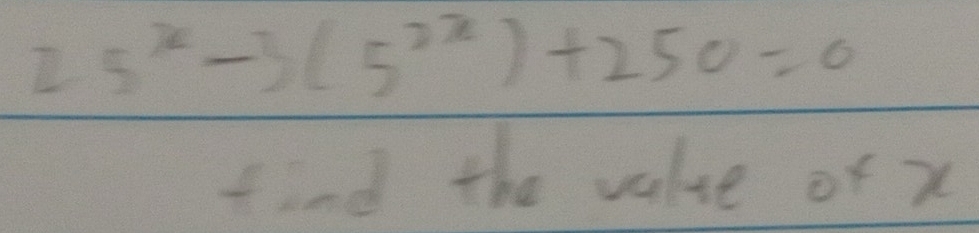 25^x - 3(5^{2x}) + 250 = 0
find the value of x